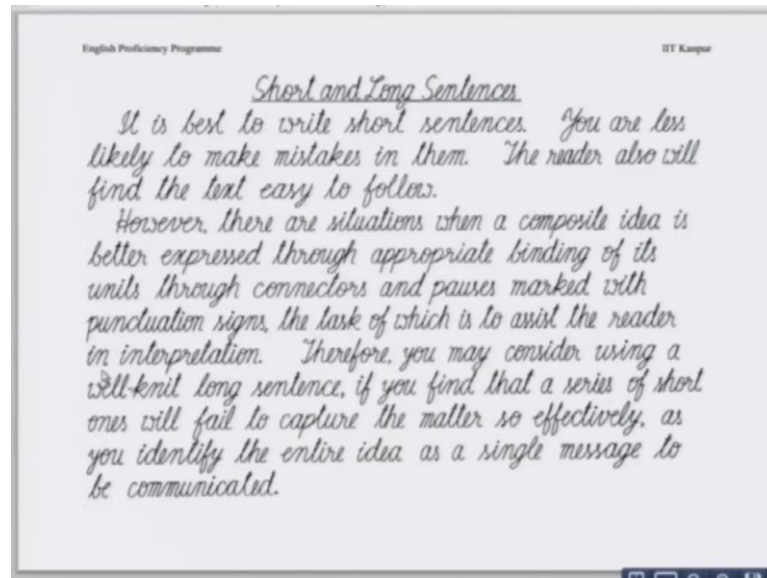 English Proficiency Programme IIT Kanpur
Short and Long Sentences
It is best to write short sentences. You are less
likely to make mistakes in them. The reader also will
find the text easy to follow.
However, there are situations when a composite idea is
better expressed through appropriate binding of its
units through connectors and pauses marked with
punctuation signs, the task of which is to assist the reader
in interpretation. Therefore, you may consider using a
well-knit long sentence, if you find that a series of short
ones will fail to capture the matter so effectively, as
you identify the entire idea as a single message to
be communicated.